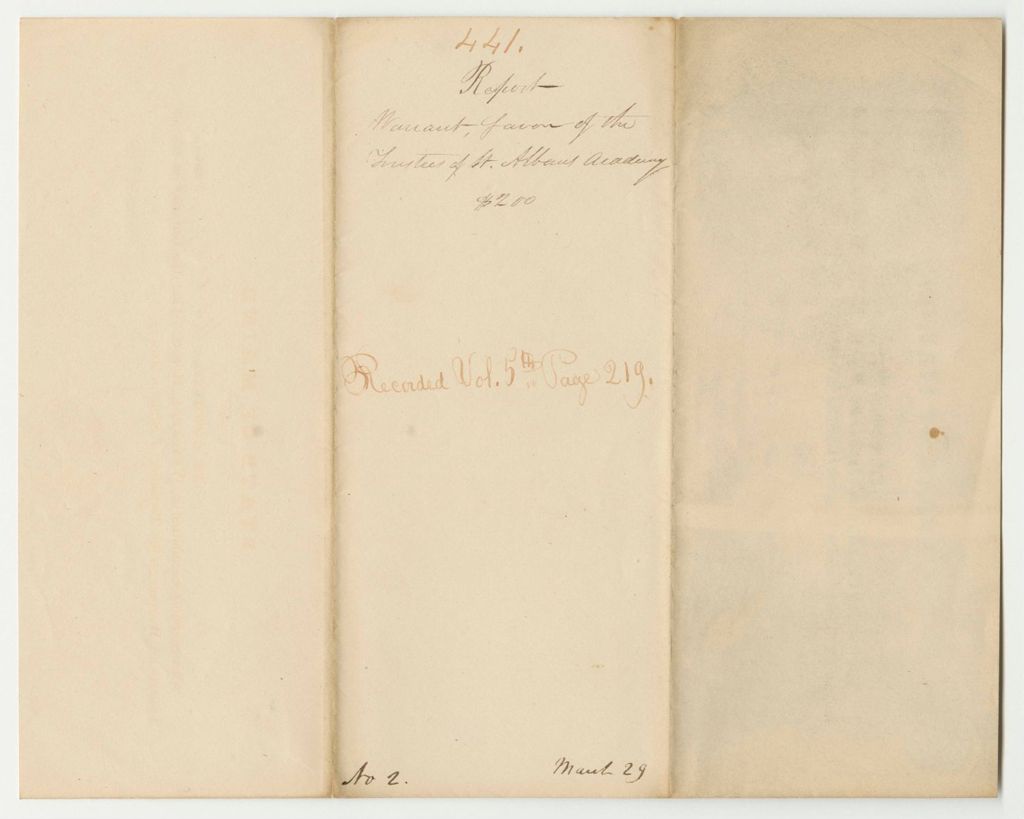 441.
Report
Warrant, favor of the
Trustees of St. Albans Academy
$200
Recorded Vol. 5th Page 219.
No 2. March 29